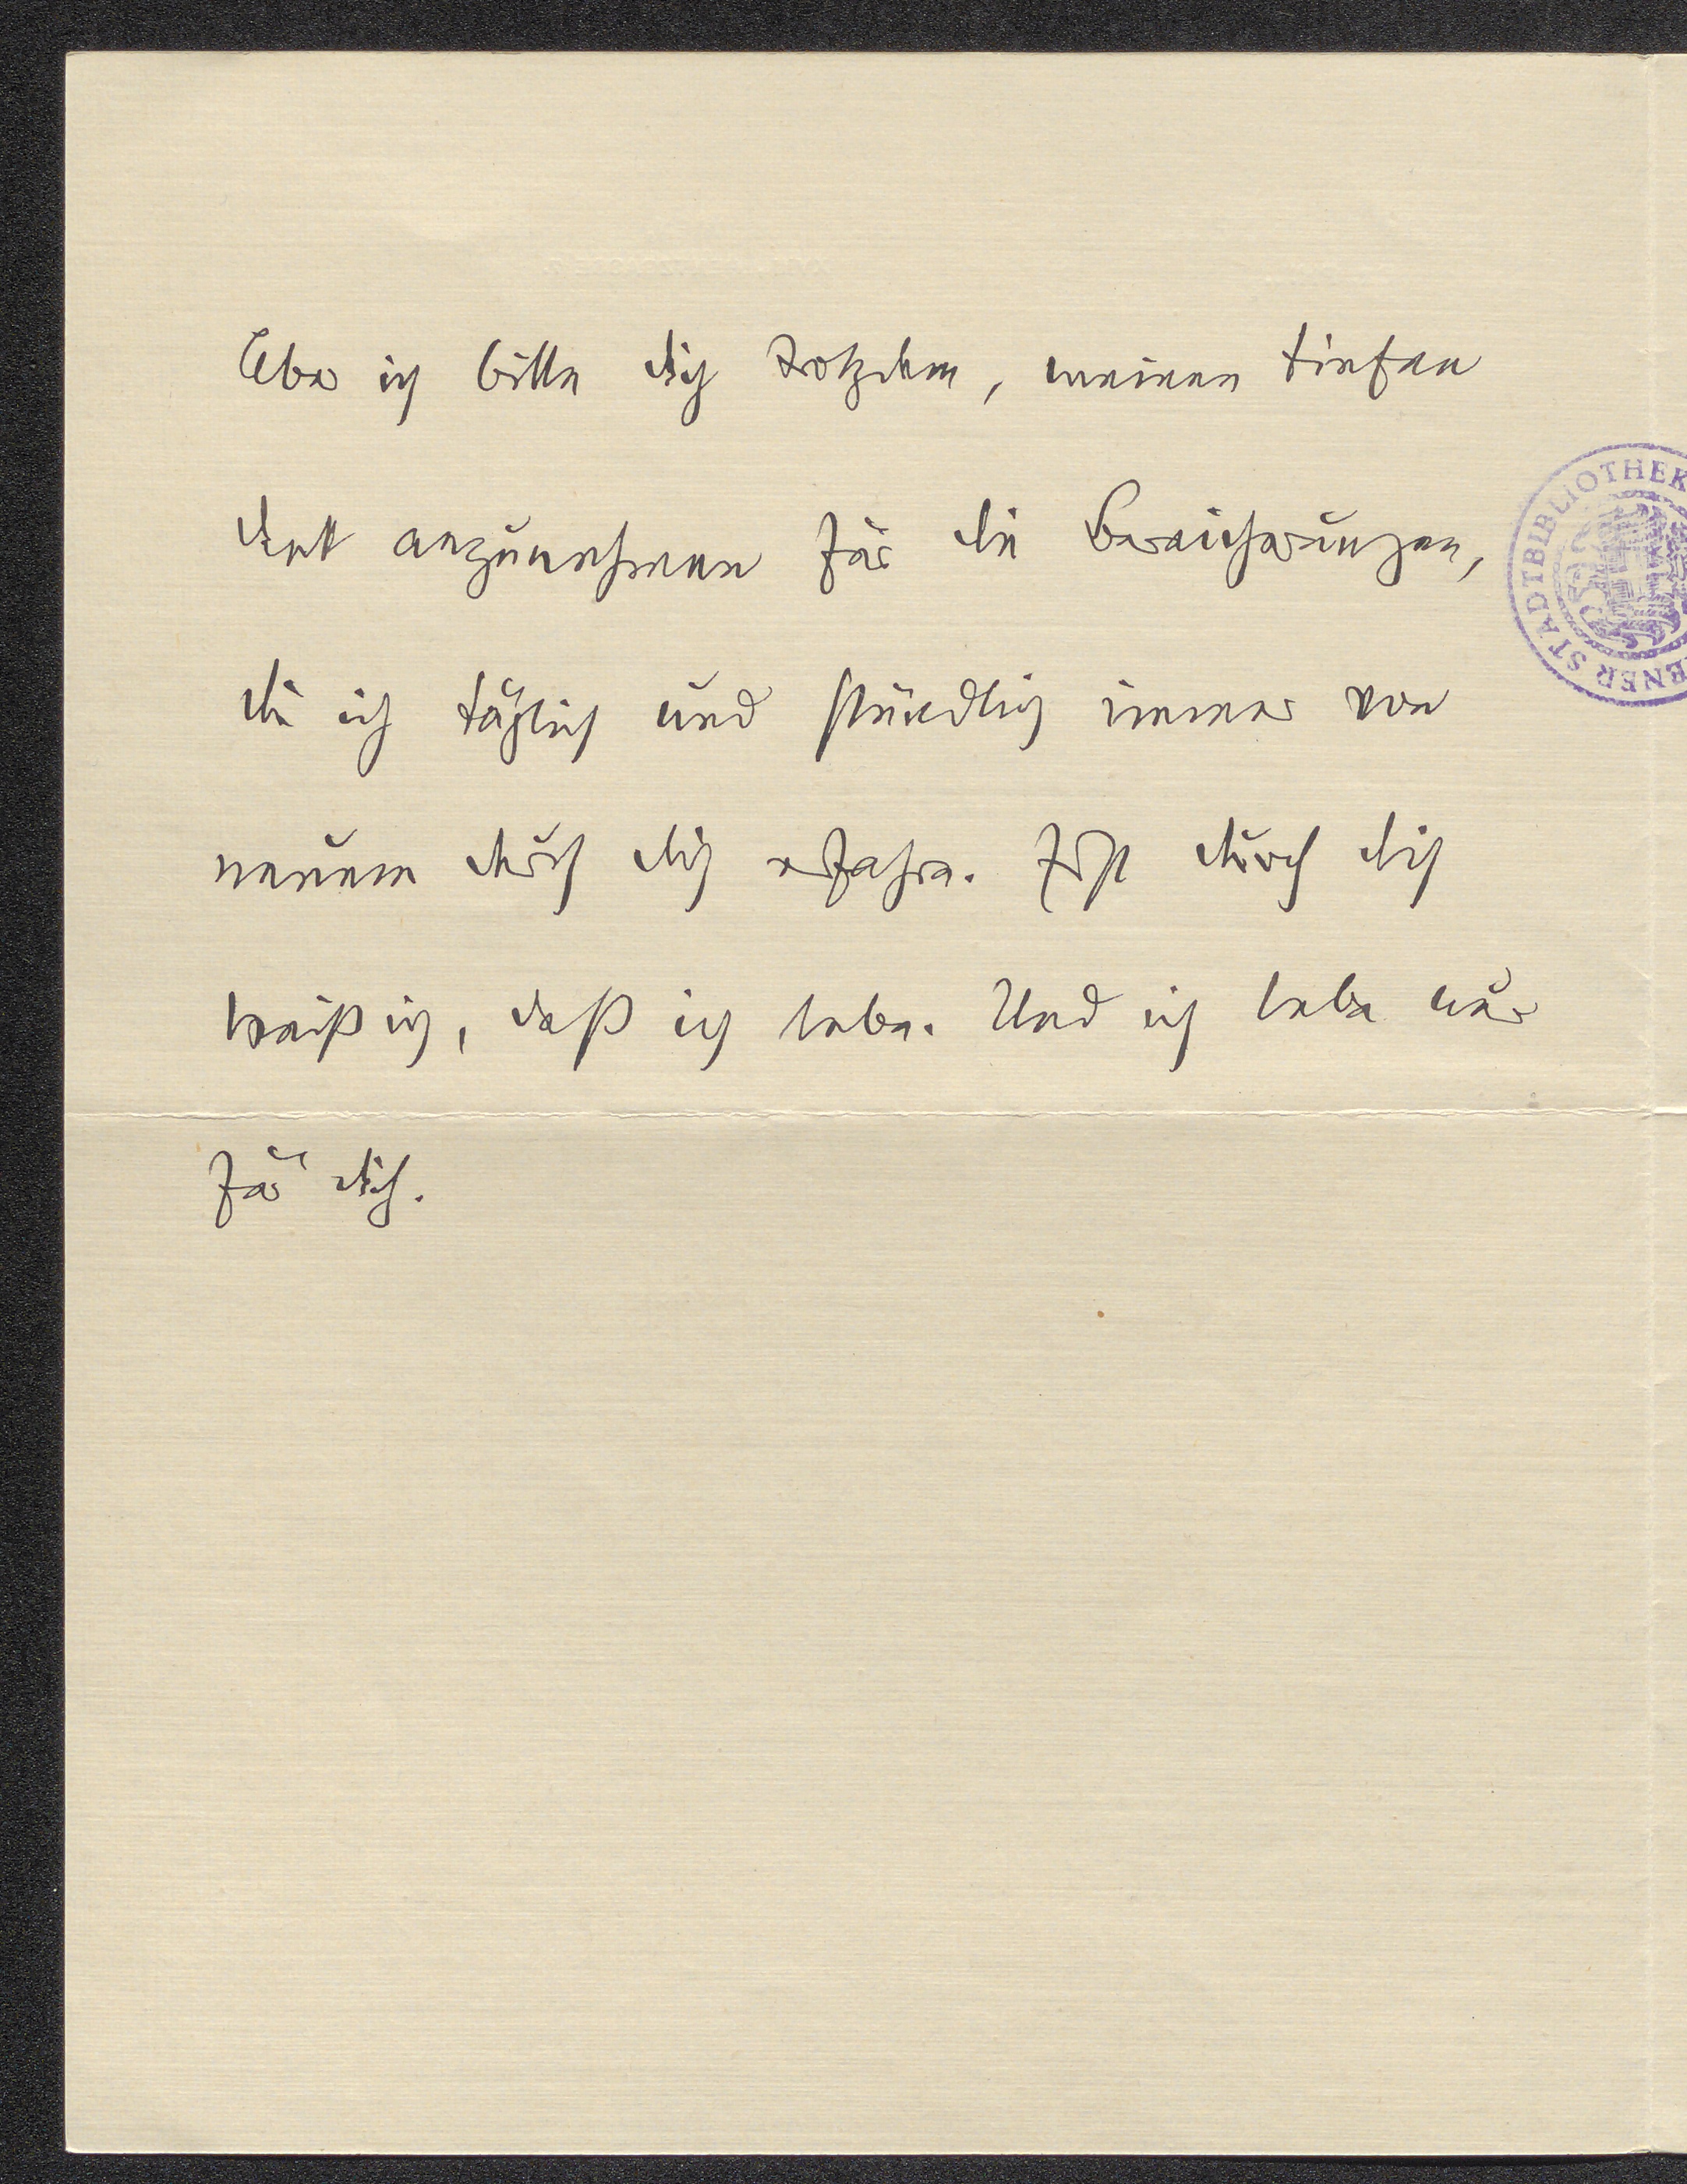 Aber ich bitte dich trotzdem, meinen tiefen
Dank anzunehmen für die Bereicherungen,
die ich täglich und stündlich immer von
neuem durch dich erfahre. Erst durch dich
weiß ich, daß ich lebe. Und ich lebe nur
für dich.
STADTBIBLIOTHEK